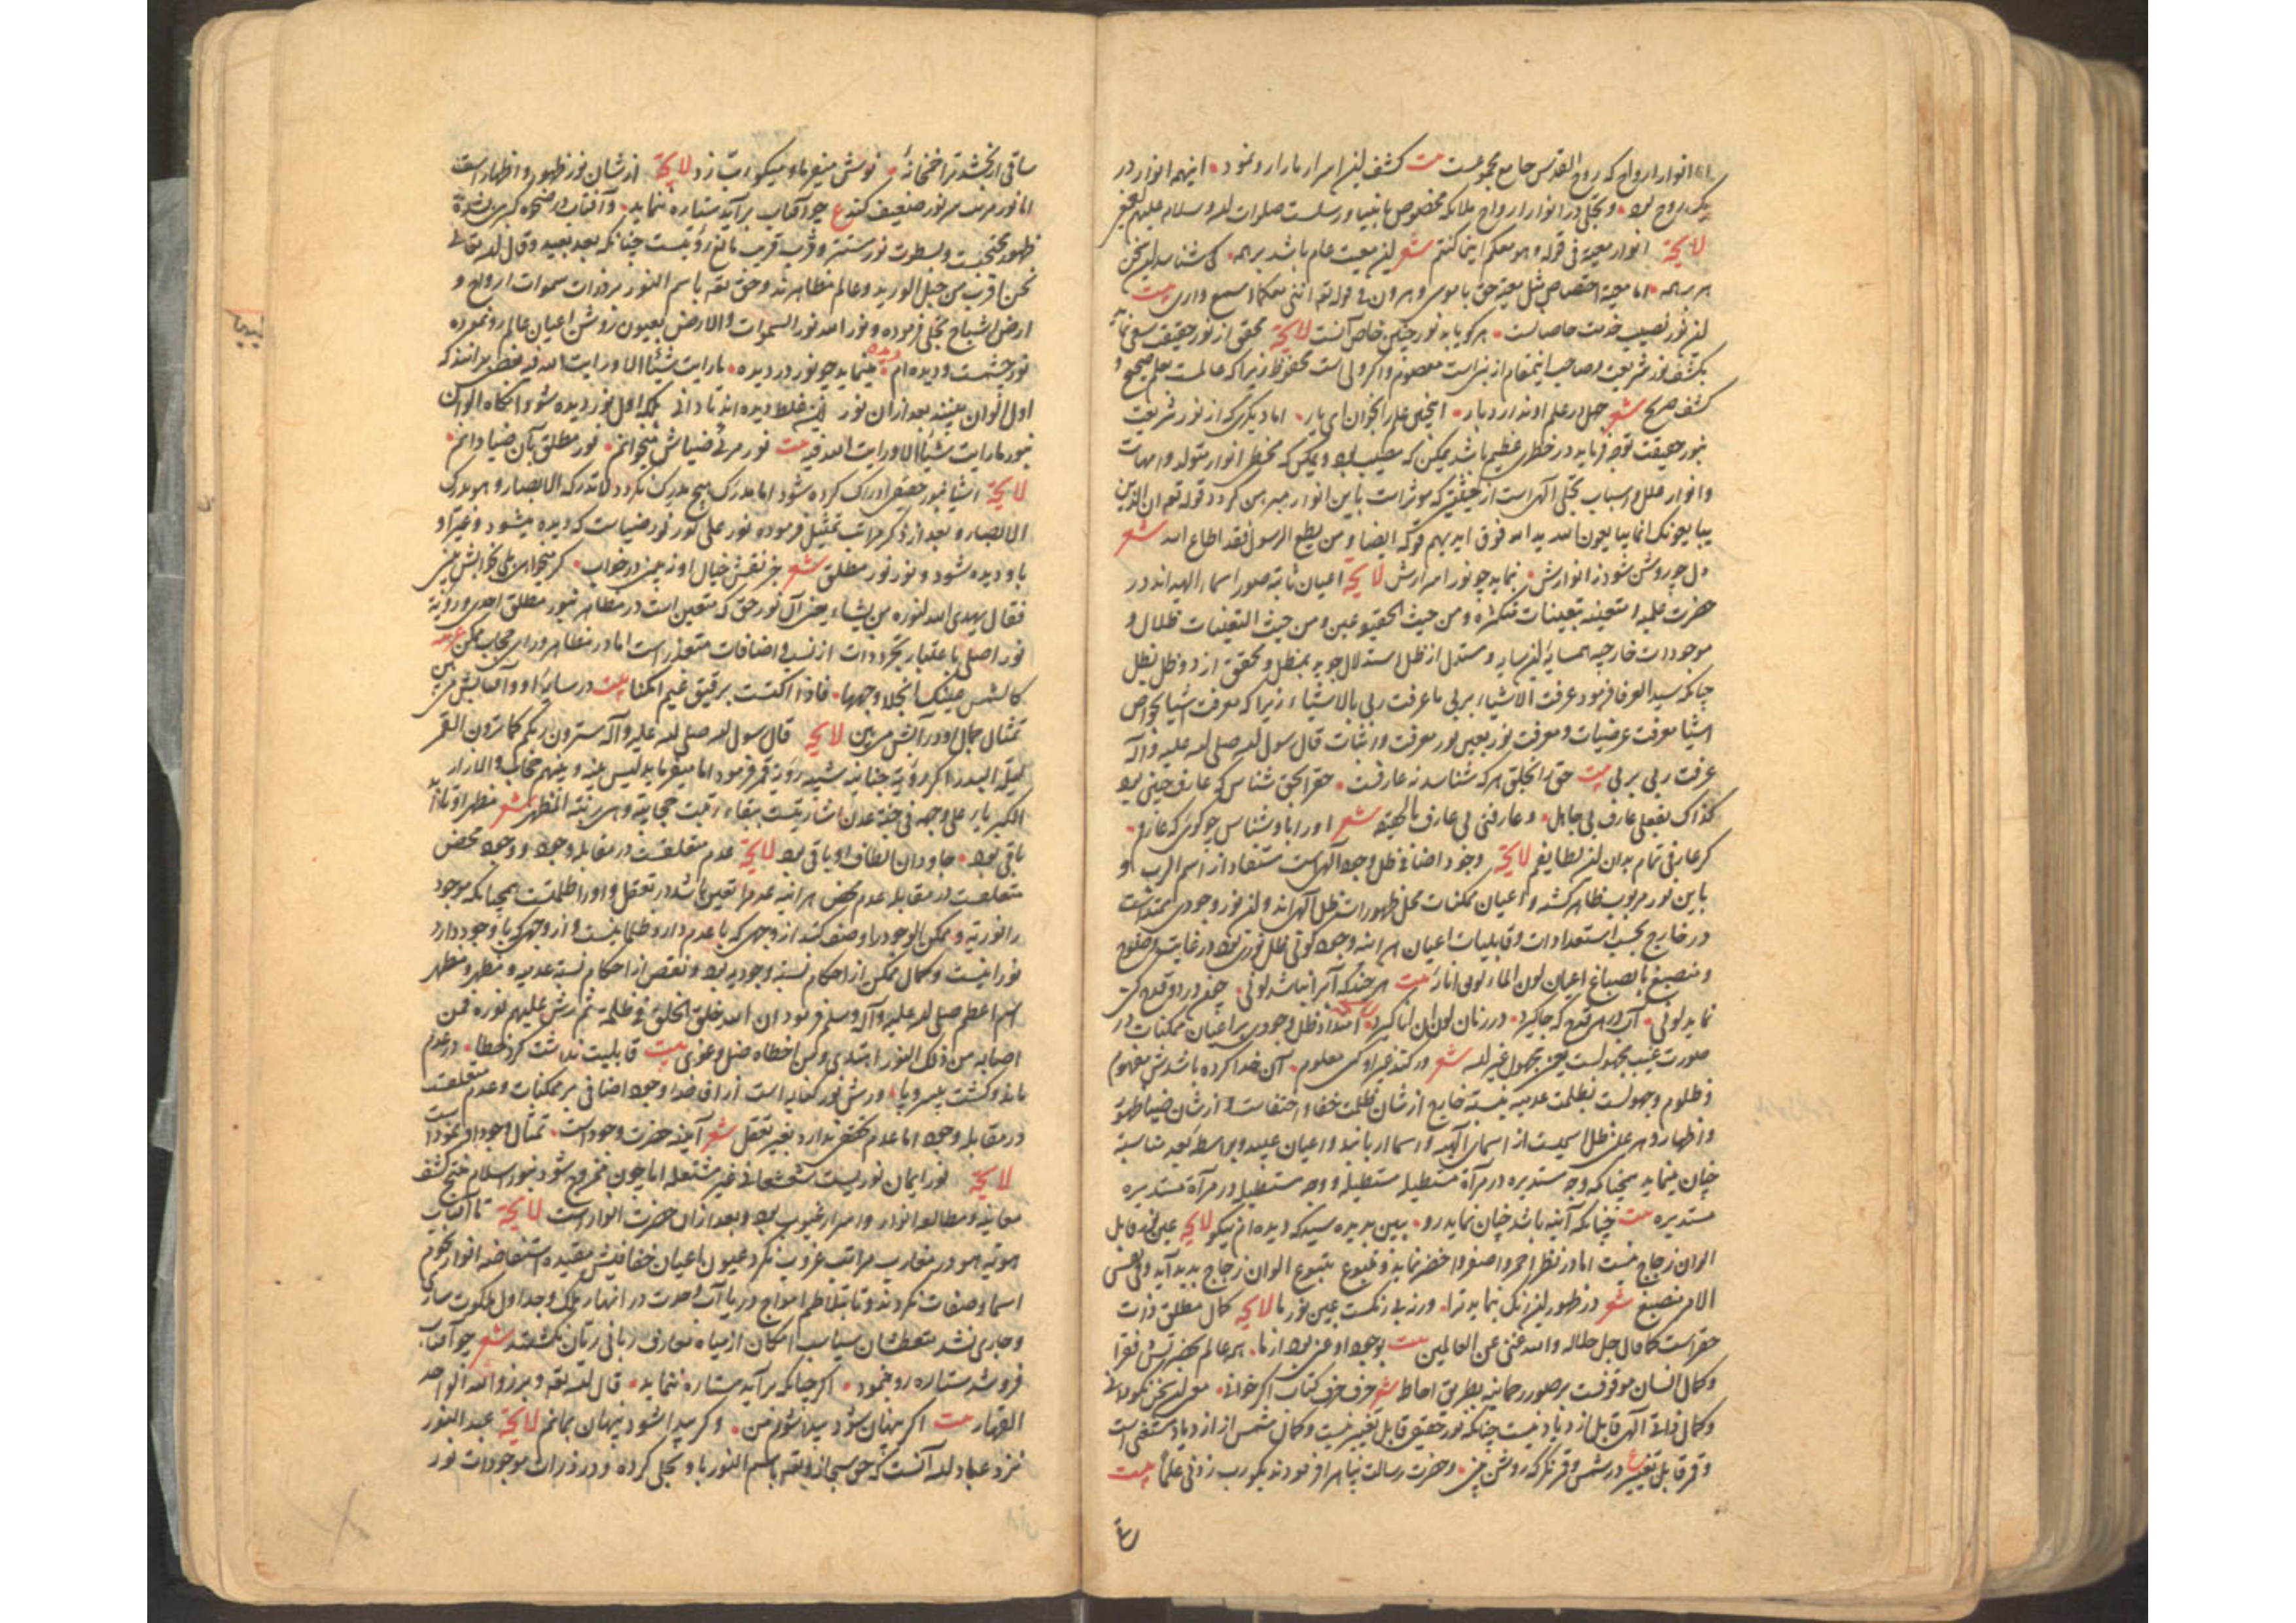 انوار ارواح که روح القدس جامع مجموعست بیت کشف این اسرار ما را رو نمود اینهمه انوار در
یک روح بود و تجلی در انوار ارواح ملائکه مخصوص بانبیا و رسلست صلوات الله و سلامه علیهم
لایحة انوار معیة فی قوله و هو معکم اینما کنتم شعر این معیت عام باشد بر همه کی شناسد این سخن
هر بر همه اما معیة اختصاص مثل معیة حق با موسی و هرون فی قوله تع اننی معکما اسمع و اری بیت
این نور نصیب خدمت خاصانست هر کو یابد نور چنین خاص آنست لایحة محقق از نور حقیقت
بکشف نور شریعت و صاحب اینمقام از نبی است معصوم و اگر ولی است محفوظ زیرا که عالمست بعلم صحیح و
کشف صریح شعر جهل در علم او ندارد بار اینچنین علم را بخوان ای یار اما دیگری که از نور شریعت
بنور حقیقت توجه فرماید در خطری عظیم باشد ممکن که مصیب بود و ممکن که مخطی انوار متولد و امهات
و انوار علل و اسباب تجلی آلهی است از حیثیتی که موثرات باین انوار مبرهن گردد قوله تع ان الذین
یبایعونک انما یبایعون الله ید الله فوق ایدیهم و قوله ایضا و من یطع الرسول فقد اطاع الله شعر
دل چو روشن شود ز انوارش بنماید چو نور اسرارش لایحة اعیان ثابته صور اسماء الهیه اند در
حضرت علمیه متعینه بتعینات متکثره و من حیث الحقیقة عین و من حیث التعینات ظلال و
موجودات خارجیه همسایهٔ این سایه و مستدل از ظل استدلال جوید بمظل و محقق از ذو ظل بظل
چنانکه سید العرفا فرمود عرفت الاشیاء بربی ما عرفت ربی بالاشیاء زیرا که معرفت اشیا بخواص
اشیا معرفت عرضیات و معرفت نور بعین نور معرفت ذاتیات قال رسول الله صلی الله علیه و آله
عرفت ربی بربی بیت حق را بخلق هر که شناسد نه عارفست حق را بحق شناس که عارف چنین بود
کذاک بفعلی عارف بی جاهل و عارفنی بی عارف بالحقیقة شعر او را باو شناس چو گوئی که عارفم
گر عارفی تمام بدان این لطایفم لایحة وجود اضافی ظل وجود الهیست مستفاد از اسم الرب و
باین نور مربوب ظاهر گشته و اعیان ممکنات محل ظهورات ظل آلهی اند و این نور وجودی ممتد است
در خارج بحسب استعدادات و قابلیات اعیان هر آینه وجود کونی ظل نوری بود در غایت وضوح
و منصبغ بانصباغ اعیان لون الماء لون انائه بیت هر چند که آب را نباشد لونی چون در دو قدح کنی
نماید لونی آب در هر قدح که جا گیرد در زمان لون آن انا گیرد امتداد ظل وجودی بر اعیان ممکنات در
صورت غیب مجهولست یعنی مجهول غیر لله شعر درک کند غیر او کسی معلوم آنکه خدا کرده باشدش مفهوم
و ظلوم و جهولست بظلمت عدمیه نسبة خارج از شان ظلمت خفا و اختفاست و از شان ضیا ظهور
و اظهار و هر عینی ظل اسمیست از اسمای آلهیه و اسما ارباباند و اعیان عبید و بواسطه بعد مناسبة
چنان مینماید همچنانکه وجه مستدیره در مرآة مستطیله مستطیله و وجه مستطیل در مرآة مستدیره
مستدیره بیت چنانکه آینه باشد چنان نماید رو ببین بدیده سید که دیده ام نیکو لایحة عین نور قابل
الوان زجاج نیست اما در نظر احمر و اصفر و اخضر نماید و تنوع بتنوع الوان زجاج بدید آید و فی نفس
الامر منصبغ شعر در ظهور این رنگ بنماید ترا ورنه بی رنگست عین نور ما لایحة کمال مطلق ذات
حق راست کما قال جل جلاله و الله غنی عن العالمین بیت بوجود او غنی بود از ما همه عالم بحضرتش فقرا
و کمال انسان موقوفست بر صورت رحمانیه بطریق احاطه شعر حرف حرف کتاب اگر خوانی معنی این سخن نکو دانی
و کمال ذاتی آلهی قابل ازدیاد نیست چنانکه نور حقیقی قابل تغییر نیست و کمال شمس از ازدیاد مستغنی است
و قمر قابل تغییر ع در شمس و قمر نگر که روشن بینی و حضرت رسالت پناه را فرمودند بگو رب زدنی علما بیت
ساقی ار بخشد ترا خمخانهٔ نوش میفرما و میگو رب زد لایحة از شان نور ظهور و اظهار است
اما نور مرتب هر نور ضعیف کند ع چو آفتاب برآید ستاره ننماید و آفتاب در ضحوهٔ کبری بشدة
ظهور محتجبست و بسطوت نور مستتر و قرب قریب مانع رؤیتست چنانکه بعد بعید و قال الله تعالی
نحن اقرب من حبل الورید و عالم مظاهرند و حق تع باسم النور بر ذرات سموات ارواح و
ارض اشباح تجلی فرموده و نور الله نور السموات و الارض بعیون روشن اعیان عالم رو نموده
نور چشمست و دیده ام دیده مینماید چو نور در دیده ما رایت شیئا الا و رایت الله فیه فقط بدانند که
اول الوان بینند بعد از آن نور این غلط دیده اند نادانی بلکه اول نور دیده شود آنگاه الوان
بنور ما رایت شیئا الا و رایت الله فیه بیت نور مرئی ضیاش میخوانم نور مطلق بآن ضیا دانم
لایحة اشیا بنور حقیقی ادراک کرده شود اما مدرک هیچ مدرک نگردد لا تدرکه الابصار و هو یدرک
الابصار و بعد از ذکر مراتب تمثیل فرموده نور علی نور نور ضیاست که دیده میشود و غیر او
باو دیده شود و نور نور مطلق شعر جز نقش خیال او نه بینی در خواب گر میخواهی بیا بخوابش بینی
فقال یهدی الله لنوره من یشاء یعنی آن نور حق که متعین است در مظاهر بنور مطلق احدی و رؤیة
نور اصلی باعتبار تجرد ذات از نسب و اضافات متعذر است اما در مظاهر و ورای حجاب ممکن عربیه
کالشمس یمنعک انجلاؤ وجهها فاذا اکتست برقیق غیم امکنا بیت در سایهٔ او و آفتابش می بین
تمثال جمال او در آبش می بین لایحة قال رسول الله صلی الله علیه و آله سترون ربکم کما ترون القمر
لیلة البدر اگر رؤیة جنانیه بشبه رؤیة قمر فرمود اما میفرماید لیس بینه و بینهم حجاب الا رداء
الکبریاء علی وجهه فی جنة عدن اشارتیست ببقاء رقبت حجابیة و هی رتبة المظهر شعر مظهر او تا ابد
باقی بود جاودان الطاف او باقی بود لایحة عدم متعلقست در مقابله وجود و وجود محض
متعلقست در مقابله عدم محض هر آینه عدم را تعین باشد در تعقل و او را ظلمتست همچنانکه موجود
را نوریة و ممکن الوجود را وصف کنند از وجهی که با عدم دارد ظلمانیست و از وجهی که با وجود دارد
نورانیست و کمال ممکن از احکام نسبة وجودیه بود و نقص از احکام نسبة عدمیه و مظهر و مظهر
اسم اعظم صلی الله علیه و آله و سلم فرمود ان الله خلق الخلق فی ظلمة ثم رش علیهم نوره فمن
اصابه من ذلک النور اهتدی و من اخطاه ضل و غوی بیت قابلیت نداشت کرد خطا در عدم
ماند و گشت بیسر و پا و رش نور کنایه است از افاضهٔ وجود اضافی بر ممکنات و عدم متعلقست
در مقابله وجود اما عدم تحقق ندارد بغیر تعقل شعر آینه حضرت وجود است تمثال وجود او نمود است
لایحة نور ایمان نوریست شعشعانی غیر مشتعله اما چون ممزوج شود بنور اسلام منتج کشف
معاینه و مطالعه انوار و اسرار غیوب بود و بعد از آن حضرت انوار است لایحة تا آفتاب
هویة هو در مغارب مراتب غروب نکرد عیون اعیان خفافیش مقیده استفاضه انوار نجوم
اسما و صفات نکردند و تا بتلاطم امواج دریا آب وحدت در انهار ملک و جداول ملکوت ساری
و جاری نشد متعطشان سیاسب امکان از میاه معارف ربانی ریان نگشتند شعر چو آفتاب
فرو شد ستاره رو بنمود اگر چنانکه برآید ستاره ننماید قال الله تع و برزوا لله الواحد
القهار بیت اگر پنهان شود پیدا شوم من و گر پیدا شود پنهان بمانم لایحة عبد النور
فرد عباد الله آنست که حق سبحانه و تع باسم النور باو تجلی کرده و در ذرات موجودات نور